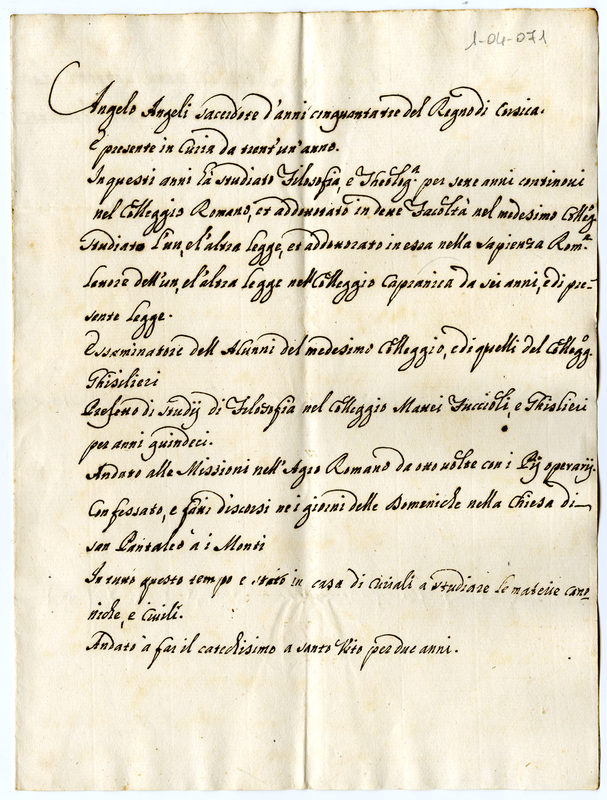 1-04-071
Angelo Angeli sacerdote d'anni cinquantatre del Regno di Corsica.
È presente in Curia da trent'un'anno.
In questi anni hà studiato Filosofia, e Theolog.ª per sette anni continovi
nel Colleggio Romano, et addottorato in dette Facoltà nel medesimo Colleg.º
Studiato l'un, e l'altra legge, et addottorato in essa nella Sapienza Rom.ª
Lettore dell'un, e l'altra legge nel Colleggio Capranica da sei anni, e di pre=
sente legge.
Essaminatore dell Alunni del medesimo Colleggio, e di quelli del Collegg.º
Ghislieri
Prefetto di studij di Filosofia nel Colleggio Mattei Fuccioli, e Ghislieri
per anni quindeci.
Andato alle Missioni nell'Agro Romano da otto volte con i Pij operarij.
Confessato, e fatti discorsi ne i giorni delle Domeniche nella Chiesa di
san Pantaleo à i Monti
In tutto questo tempo e stato in casa di Curiali a studiare le materie cano=
niche, e Civili.
Andato à far il catechisimo a santo Vito per due anni.